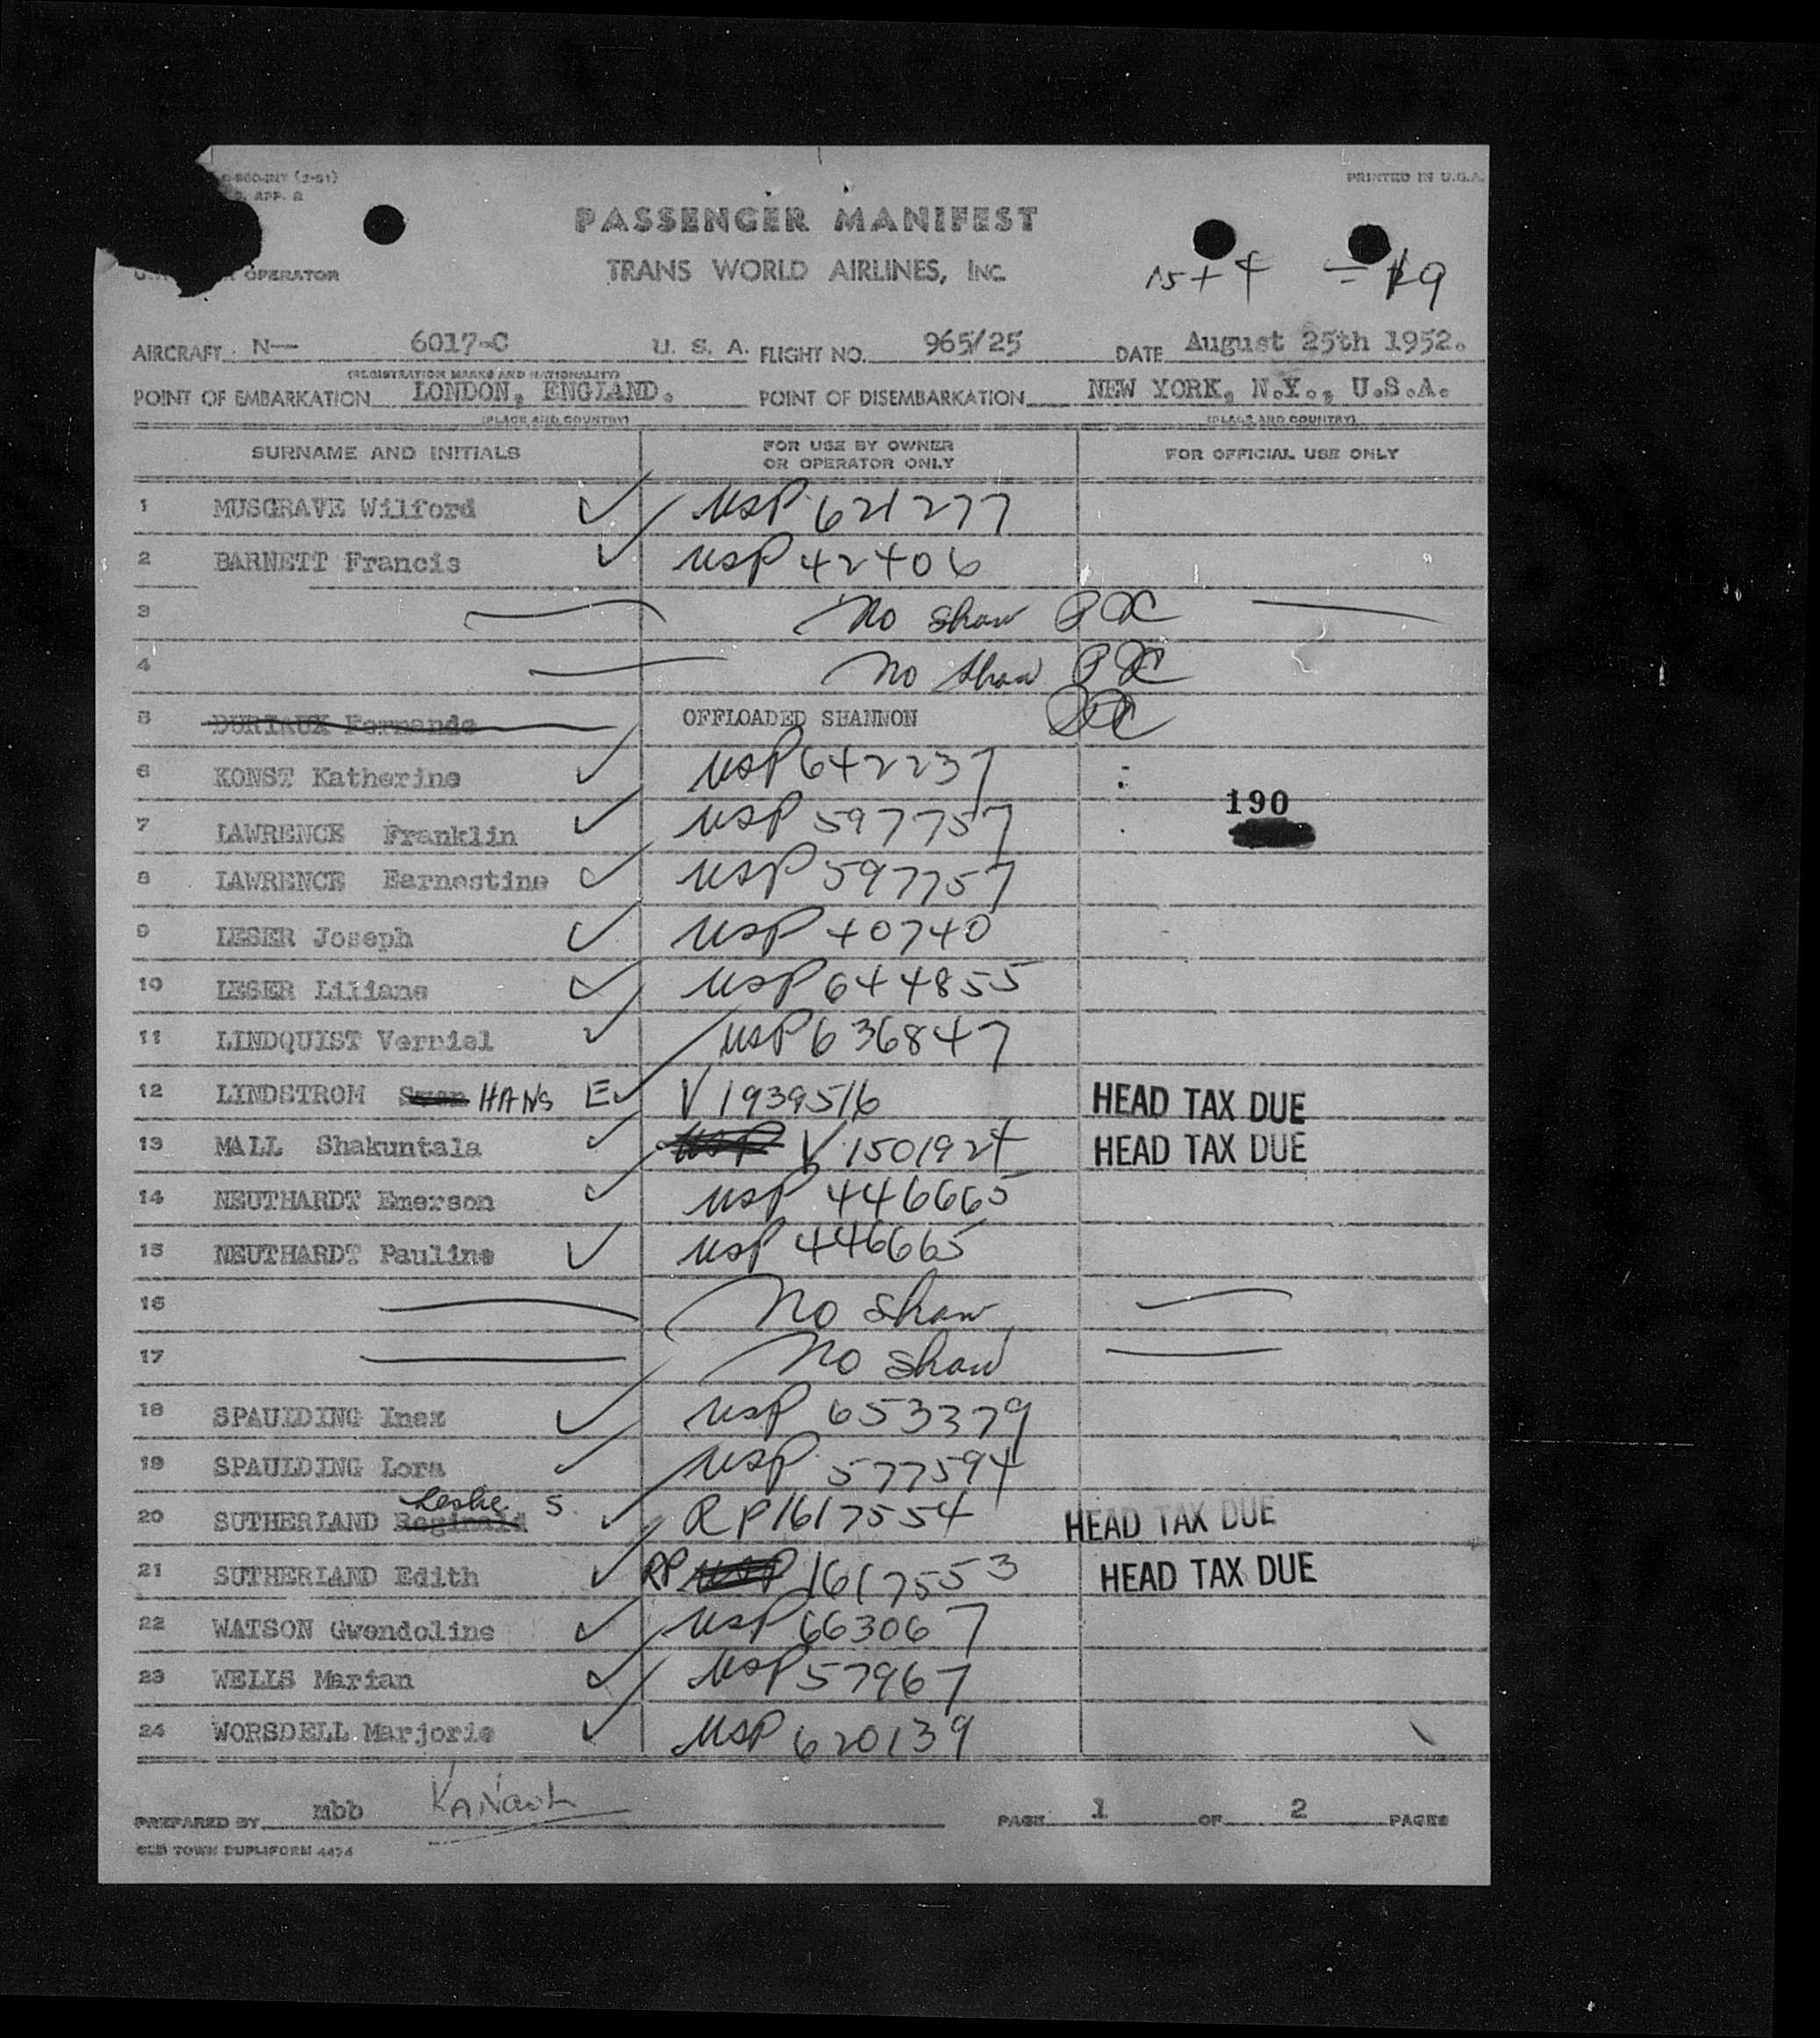 -900-INT (3-51)
APP. 2
PRINTED IN U.S.A.
PASSENGER MANIFEST
OPERATOR
TRANS WORLD AIRLINES, INC.
15 + 4 = 19
AIRCRAFT N— 6017-C U. S. A. FLIGHT NO. 965/25 DATE August 25th 1952.
(REGISTRATION MARKS AND NATIONALITY)
POINT OF EMBARKATION LONDON, ENGLAND. POINT OF DISEMBARKATION NEW YORK, N.Y., U.S.A.
(PLACE AND COUNTRY) (PLACE AND COUNTRY)
SURNAME AND INITIALS FOR USE BY OWNER OR OPERATOR ONLY FOR OFFICIAL USE ONLY
1 MUSGRAVE Wilford USP 621277
2 BARNETT Francis USP 42406
3 No Show
4 No Show
5 DURIAUX Fernande OFFLOADED SHANNON
6 KONST Katherine USP 642237
190
7 LAWRENCE Franklin USP 597757
8 LAWRENCE Earnestine USP 597757
9 LESER Joseph USP 40740
10 LESER Liliane USP 644855
11 LINDQUIST Verniel USP 636847
12 LINDSTROM HANS E V 1939516 HEAD TAX DUE
13 MALL Shakuntala USP V 1501924 HEAD TAX DUE
14 NEUTHARDT Emerson USP 446665
15 NEUTHARDT Pauline USP 446665
16 No Show
17 No Show
18 SPAULDING Inez USP 653379
19 SPAULDING Lora USP 577594
20 SUTHERLAND Reginald Leslie S RP 1617554 HEAD TAX DUE
21 SUTHERLAND Edith RP USP 1617553 HEAD TAX DUE
22 WATSON Gwendoline USP 663067
23 WELLS Marian USP 57967
24 WORSDELL Marjorie USP 620139
PREPARED BY mbb PAGE 1 OF 2 PAGES
OLD TOWN DUPLIFORM 4474